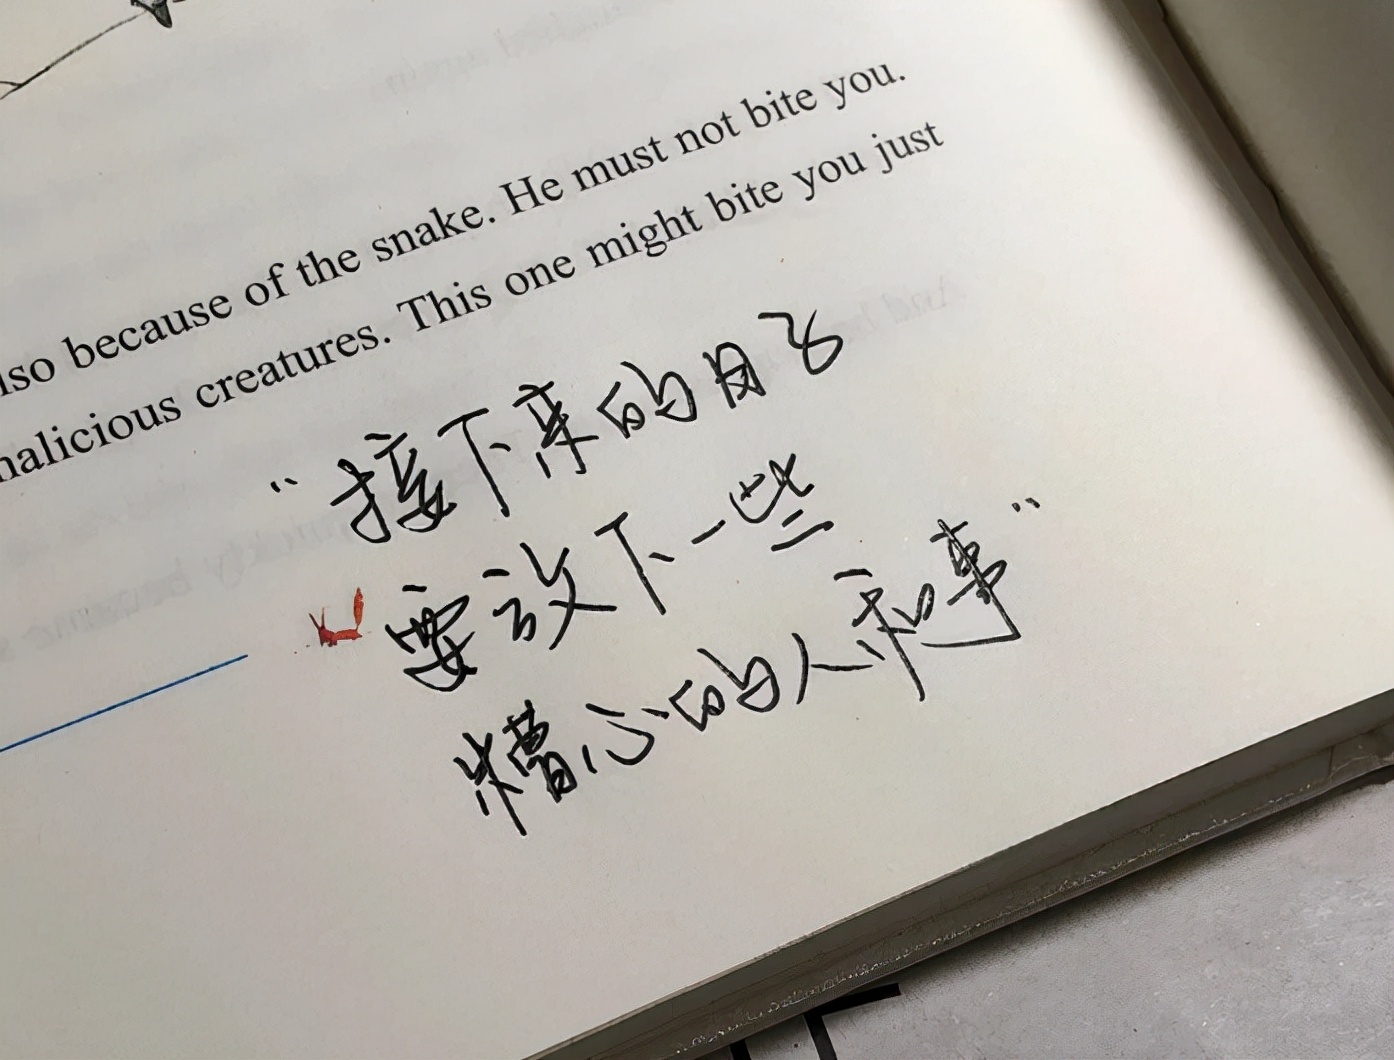 lso because of the snake. He must not bite you.
malicious creatures. This one might bite you just
"接下来的日子
要放下一些
糟心的人和事"